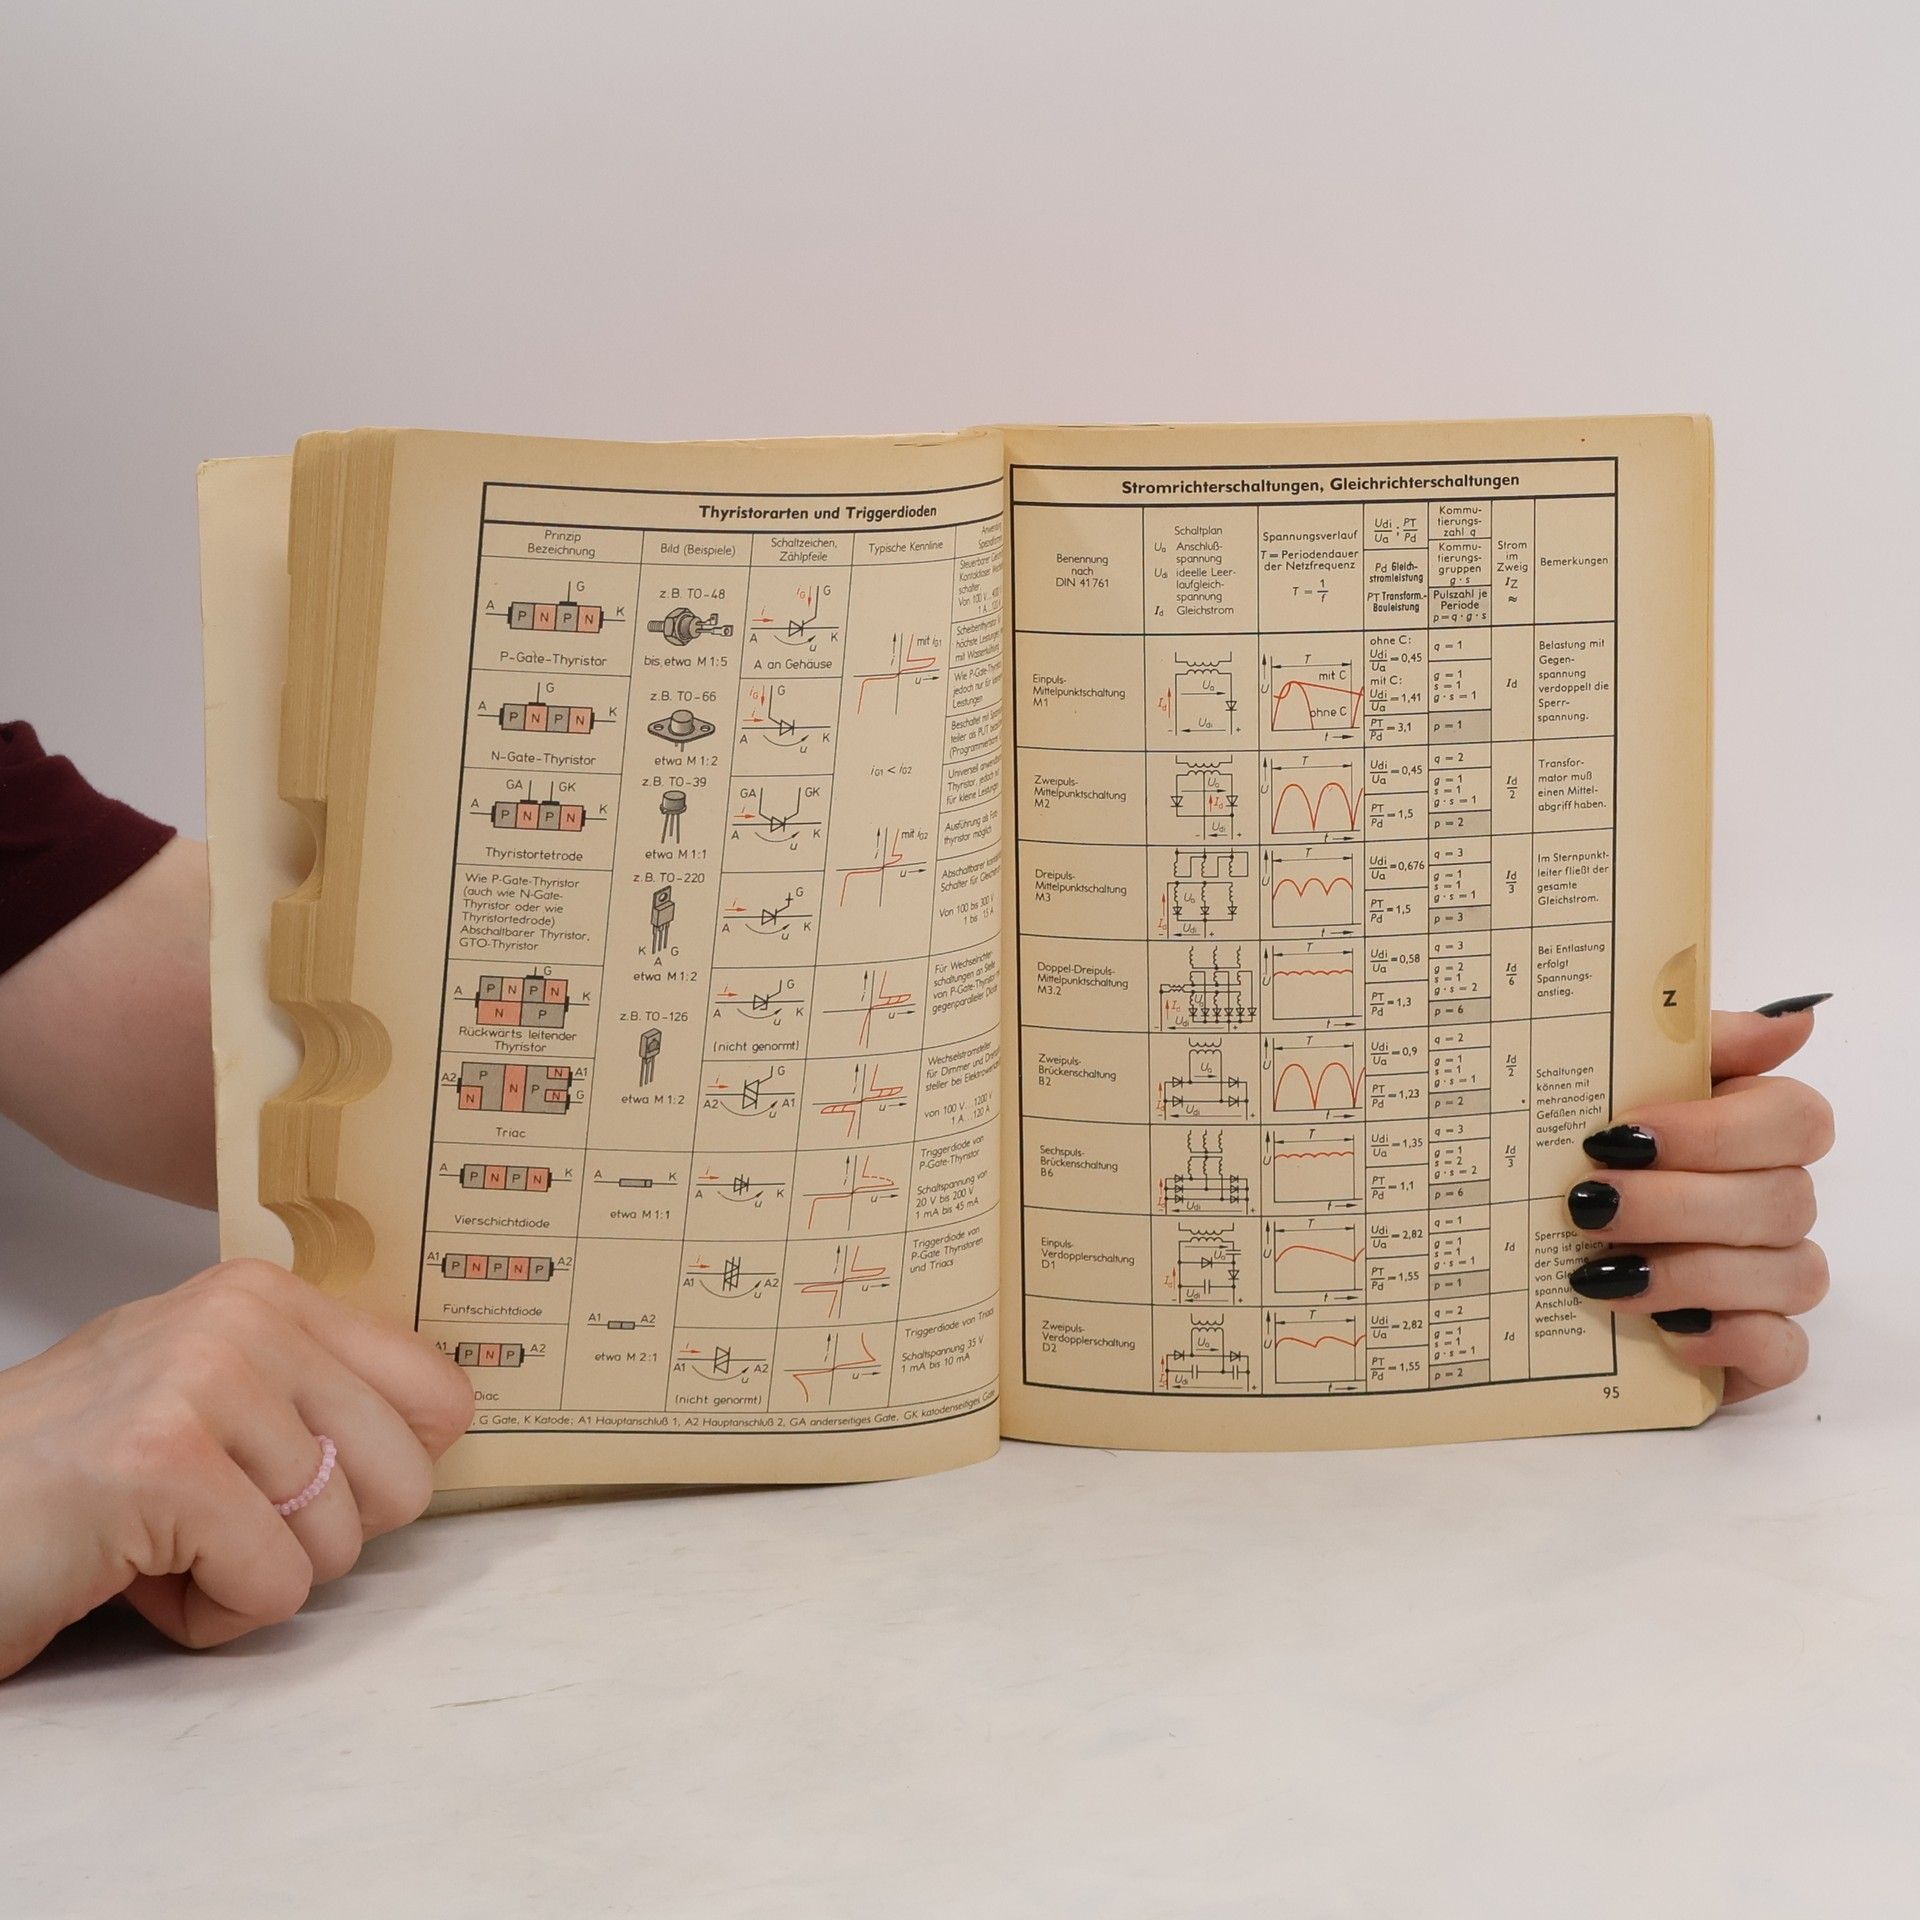 Thyristorarten und Triggerdioden
Prinzip
Bezeichnung
Bild (Beispiele)
Schaltzeichen,
Zählpfeile
Typische Kennlinie
G
A P N P N K
P-Gate-Thyristor
z.B. TO-48
bis etwa M 1:5
iG G
i
A u K
A an Gehäuse
mit iG1
i
u
G
A P N P N K
N-Gate-Thyristor
z.B. TO-66
etwa M 1:2
iG G
i
A u K
iG1 < iG2
GA GK
A P N P N K
Thyristortetrode
z.B. TO-39
etwa M 1:1
GA GK
i
A u K
mit iG2
i
u
Wie P-Gate-Thyristor
(auch wie N-Gate-
Thyristor oder wie
Thyristortedrode)
Abschaltbarer Thyristor,
GTO-Thyristor
z.B. TO-220
K A G
etwa M 1:2
i G
A u K
Von 100 bis 300 V
1 bis 15 A
G
A P N P N K
N P
Rückwärts leitender
Thyristor
z.B. TO-126
etwa M 1:2
i G
A u K
(nicht genormt)
i
u
Für Wechselrichter-
schaltungen an Stelle
von P-Gate-Thyristor
gegenparalleler Diode
A2 P N P N A1
N N G
Triac
i G
A2 u A1
i
u
Wechselstromsteller
für Dimmer und
steller bei
von 100 V...1200 V
1 A...120 A
A P N P N K
Vierschichtdiode
A K
etwa M 1:1
i
A u K
i
u
Triggerdiode von
P-Gate-Thyristor
Schaltspannung von
20 V bis 200 V
1 mA bis 45 mA
A1 N P N P A2
Fünfschichtdiode
i
A1 u A2
i
u
Triggerdiode von
P-Gate Thyristoren
und Triacs
A1 P N P A2
Diac
A1 A2
etwa M 2:1
i
A1 u A2
(nicht genormt)
i
u
Triggerdiode von Triacs
Schaltspannung 35 V
1 mA bis 10 mA
, G Gate, K Katode; A1 Hauptanschluß 1, A2 Hauptanschluß 2, GA anderseitiges Gate, GK katodenseitiges Gate
Stromrichterschaltungen, Gleichrichterschaltungen
Benennung
nach
DIN 41761
Schaltplan
Ua Anschluß-
spannung
Udi ideelle Leer-
laufgleich-
spannung
Id Gleichstrom
Spannungsverlauf
T = Periodendauer
der Netzfrequenz
T = 1/f
Udi/Ua ; PT/Pd
Pd Gleich-
stromleistung
PT Transform.-
Bauleistung
Kommu-
tierungs-
zahl q
Kommu-
tierungs-
gruppen
g·s
Pulszahl je
Periode
p=q·g·s
Strom
im
Zweig
IZ
≈
Bemerkungen
Einpuls-
Mittelpunktschaltung
M1
Id Ua Udi - +
U T mit C ohne C t
ohne C:
Udi/Ua = 0,45
mit C:
Udi/Ua = 1,41
PT/Pd = 3,1
q = 1
g = 1
s = 1
g·s = 1
p = 1
Id
Belastung mit
Gegen-
spannung
verdoppelt die
Sperr-
spannung.
Zweipuls-
Mittelpunktschaltung
M2
Ua Id Udi - +
U T t
Udi/Ua = 0,45
PT/Pd = 1,5
q = 2
g = 1
s = 1
g·s = 1
p = 2
Id/2
Transfor-
mator muß
einen Mittel-
abgriff haben.
Dreipuls-
Mittelpunktschaltung
M3
Id Ua Udi - +
U T t
Udi/Ua = 0,676
PT/Pd = 1,5
q = 3
g = 1
s = 1
g·s = 1
p = 3
Id/3
Im Sternpunkt-
leiter fließt der
gesamte
Gleichstrom.
Doppel-Dreipuls-
Mittelpunktschaltung
M3.2
Id Ua Udi - +
U T t
Udi/Ua = 0,58
PT/Pd = 1,3
q = 3
g = 2
s = 1
g·s = 2
p = 6
Id/6
Bei Entlastung
erfolgt
Spannungs-
anstieg.
Z
Zweipuls-
Brückenschaltung
B2
Ua Id Udi - +
U T t
Udi/Ua = 0,9
PT/Pd = 1,23
q = 2
g = 1
s = 1
g·s = 1
p = 2
Id/2
Schaltungen
können mit
mehranodigen
Gefäßen nicht
ausgeführt
werden.
Sechspuls-
Brückenschaltung
B6
Id Udi - +
U T t
Udi/Ua = 1,35
PT/Pd = 1,1
q = 3
g = 1
s = 2
g·s = 2
p = 6
Id/3
Einpuls-
Verdopplerschaltung
D1
Ua Id Udi - +
U T t
Udi/Ua = 2,82
PT/Pd = 1,55
q = 1
g = 1
s = 1
g·s = 1
p = 1
Id
nung ist gleich
der Summe
von
Anschluß-
wechsel-
spannung.
Zweipuls-
Verdopplerschaltung
D2
Ua Id Udi - +
U T t
Udi/Ua = 2,82
PT/Pd = 1,55
q = 2
g = 1
s = 1
g·s = 1
p = 2
Id
95